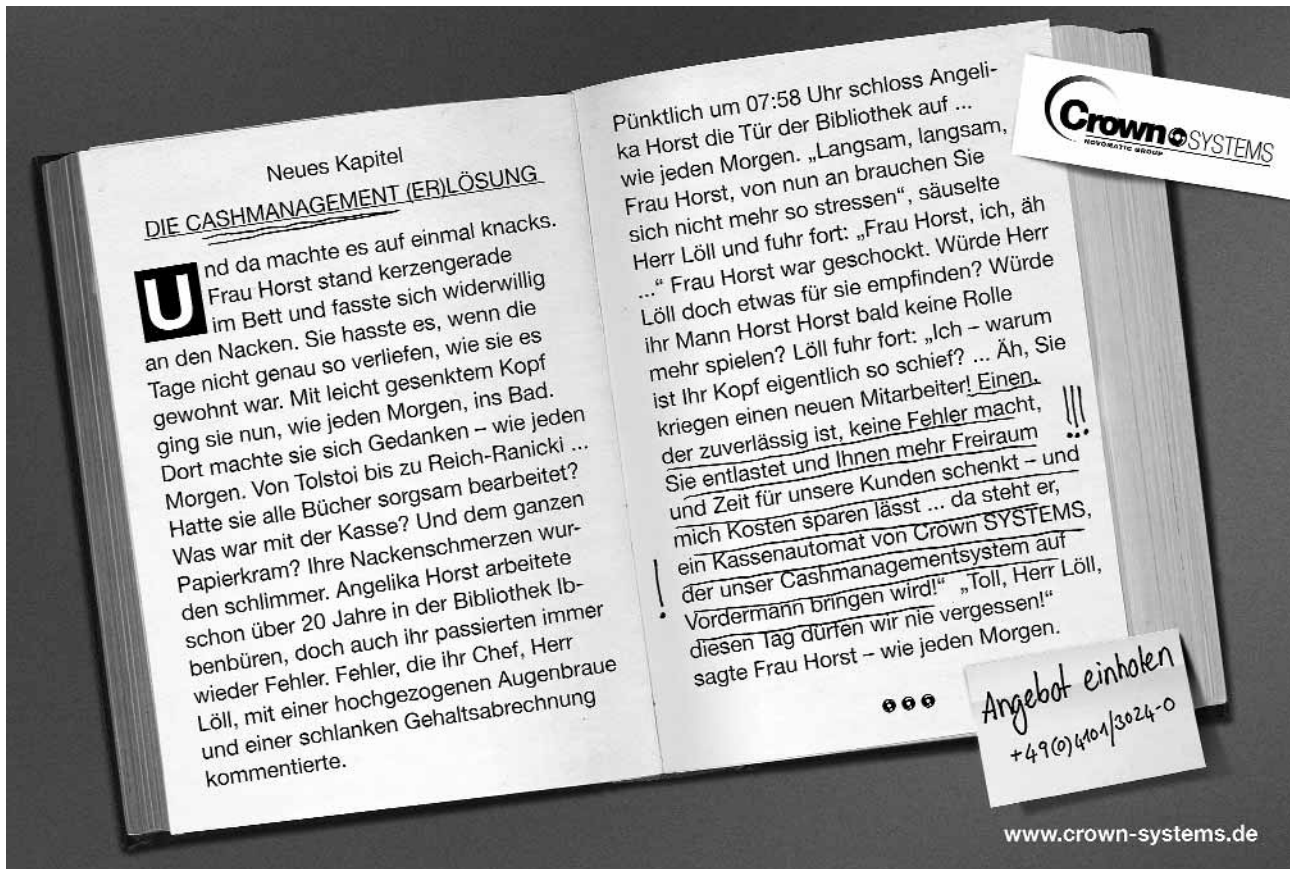 Neues Kapitel
DIE CASHMANAGEMENT (ER)LÖSUNG
Und da machte es auf einmal knacks.
Frau Horst stand kerzengerade
im Bett und fasste sich widerwillig
an den Nacken. Sie hasste es, wenn die
Tage nicht genau so verliefen, wie sie es
gewohnt war. Mit leicht gesenktem Kopf
ging sie nun, wie jeden Morgen, ins Bad.
Dort machte sie sich Gedanken – wie jeden
Morgen. Von Tolstoi bis zu Reich-Ranicki ...
Hatte sie alle Bücher sorgsam bearbeitet?
Was war mit der Kasse? Und dem ganzen
Papierkram? Ihre Nackenschmerzen wur-
den schlimmer. Angelika Horst arbeitete
schon über 20 Jahre in der Bibliothek Ib-
benbüren, doch auch ihr passierten immer
wieder Fehler. Fehler, die ihr Chef, Herr
Löll, mit einer hochgezogenen Augenbraue
und einer schlanken Gehaltsabrechnung
kommentierte.
Pünktlich um 07:58 Uhr schloss Angeli-
ka Horst die Tür der Bibliothek auf ...
wie jeden Morgen. „Langsam, langsam,
Frau Horst, von nun an brauchen Sie
sich nicht mehr so stressen“, säuselte
Herr Löll und fuhr fort: „Frau Horst, ich, äh
...“ Frau Horst war geschockt. Würde Herr
Löll doch etwas für sie empfinden? Würde
ihr Mann Horst Horst bald keine Rolle
mehr spielen? Löll fuhr fort: „Ich – warum
ist Ihr Kopf eigentlich so schief? ... Äh, Sie
kriegen einen neuen Mitarbeiter! Einen,
der zuverlässig ist, keine Fehler macht,
Sie entlastet und Ihnen mehr Freiraum
und Zeit für unsere Kunden schenkt – und
mich Kosten sparen lässt ... da steht er,
ein Kassenautomat von Crown SYSTEMS,
der unser Cashmanagementsystem auf
Vordermann bringen wird!“ „Toll, Herr Löll,
diesen Tag dürfen wir nie vergessen!“
sagte Frau Horst – wie jeden Morgen.
!
!!!
Crown SYSTEMS
NOVOMATIC GROUP
Angebot einholen
+49(0)4101/3024-0
www.crown-systems.de